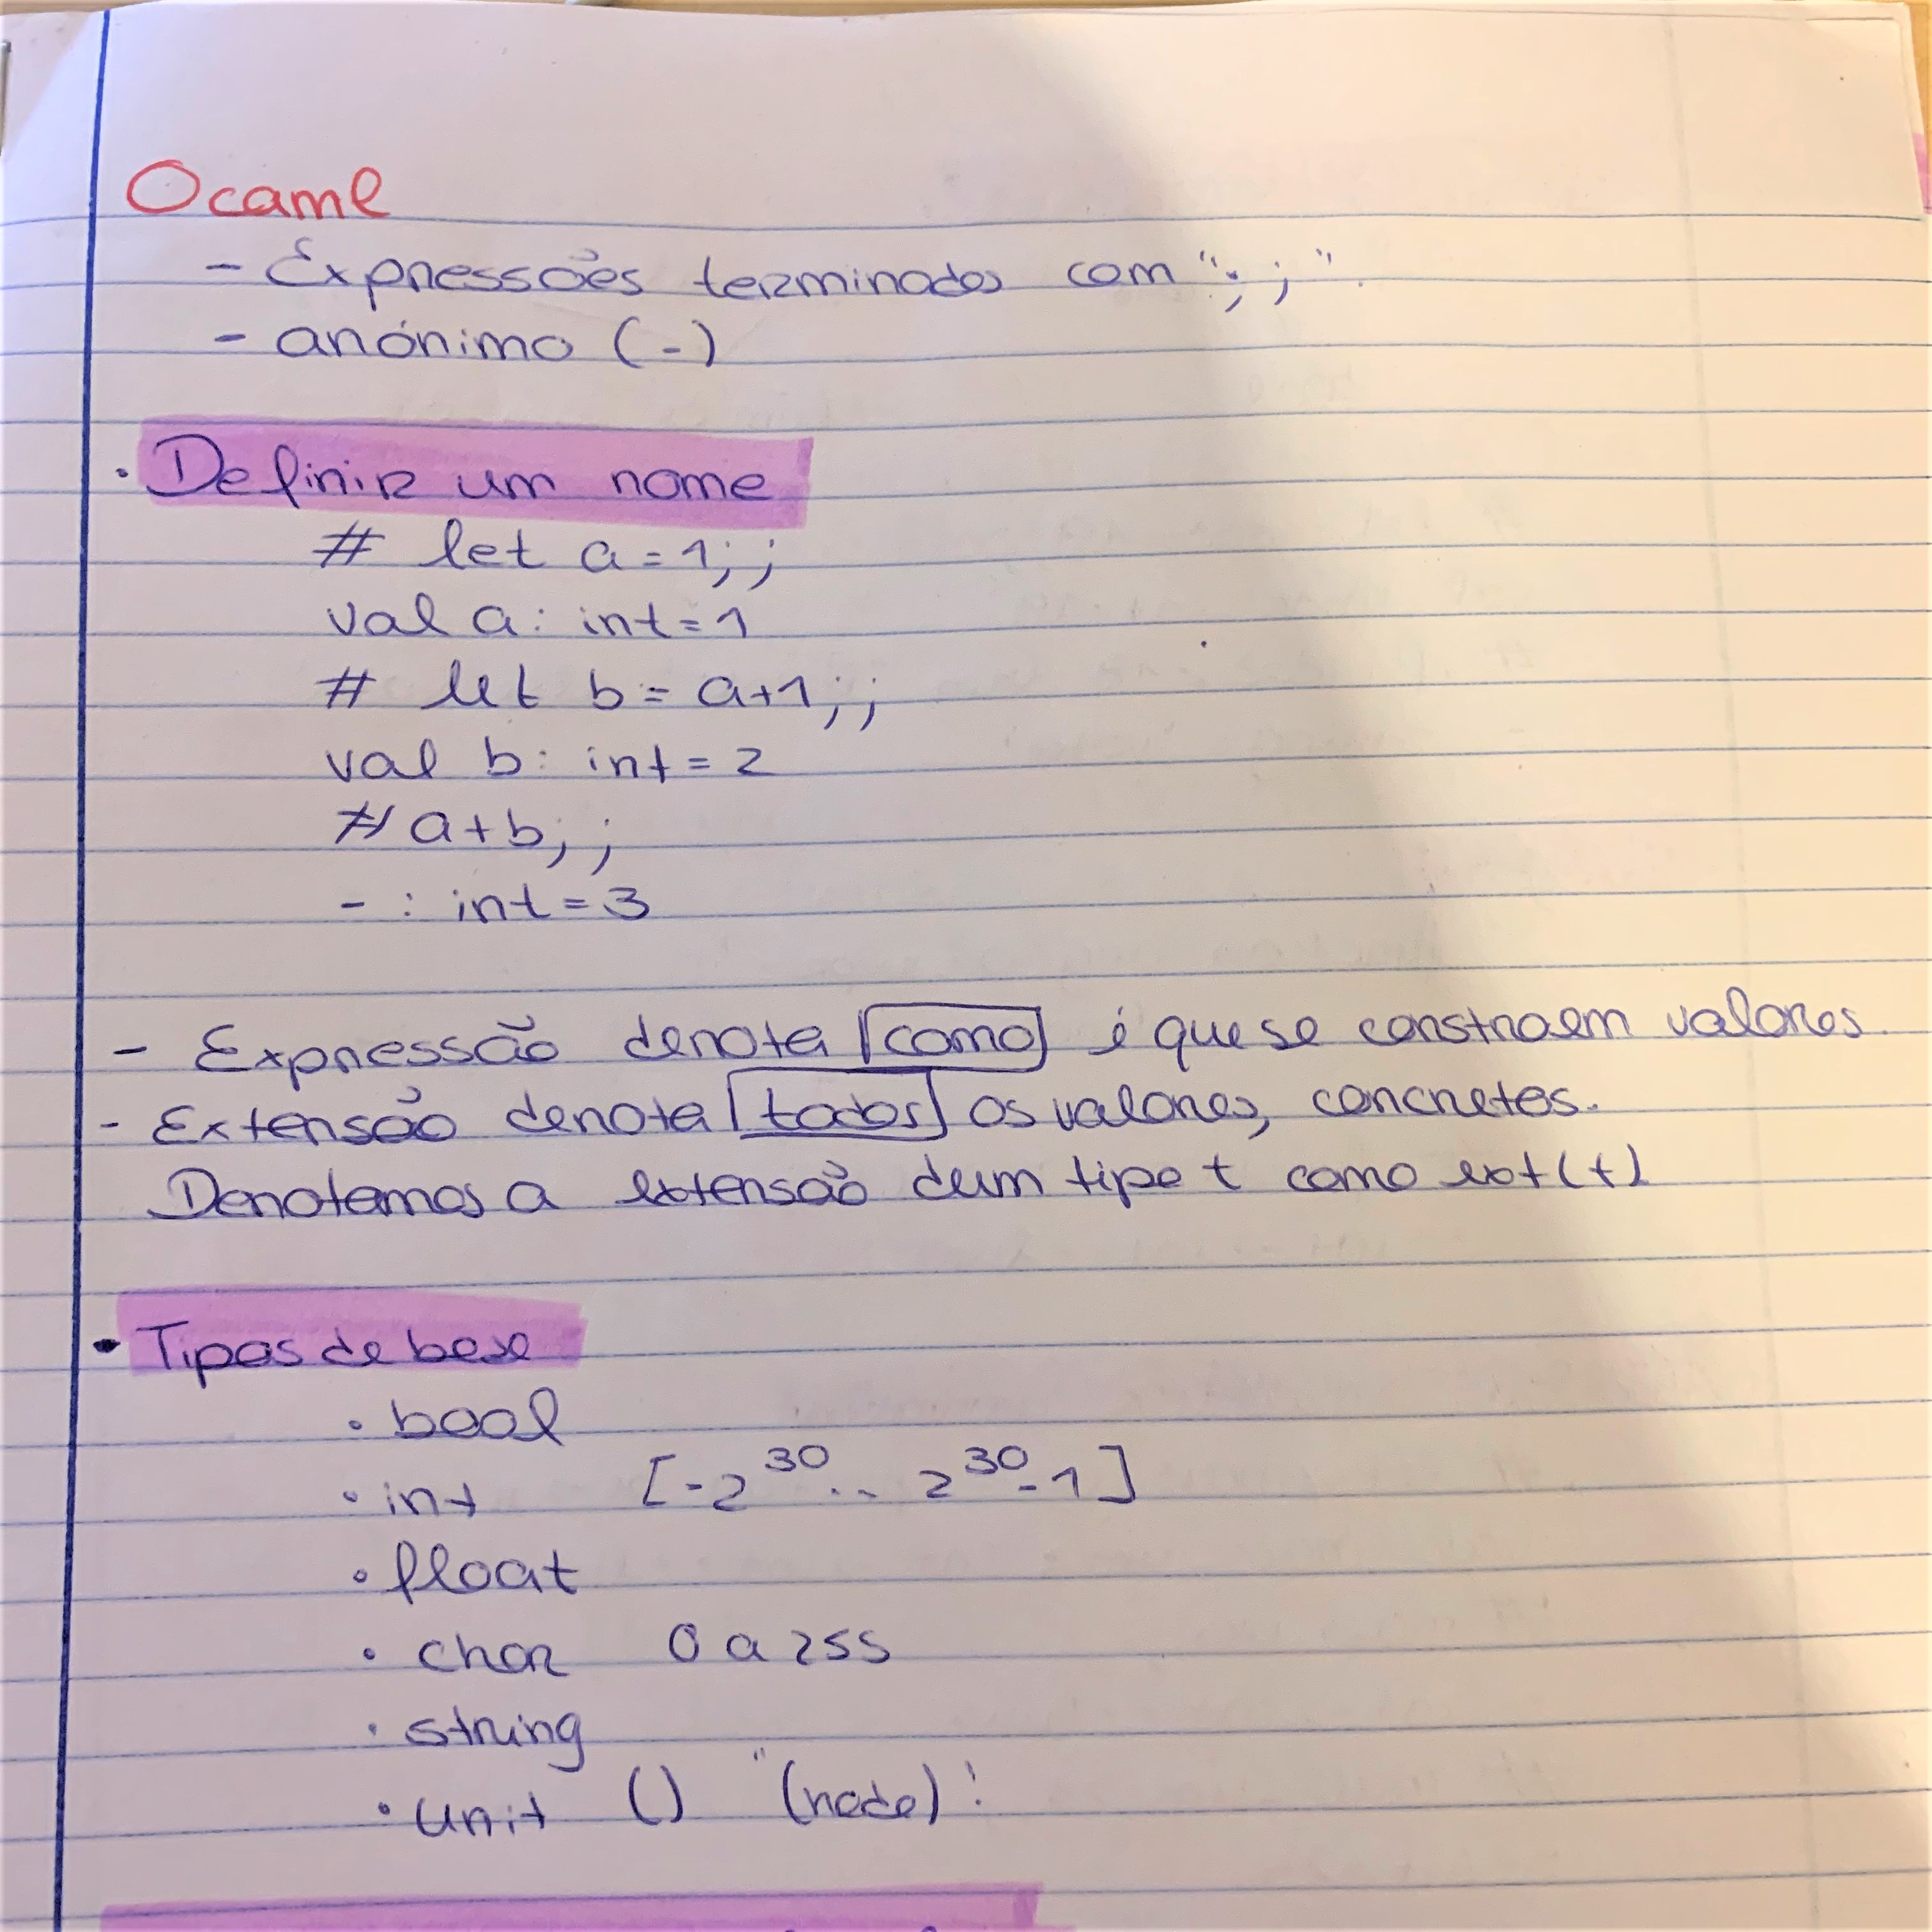 Ocaml
- Expressões terminados com ";;".
- anónimo (-)
· Definir um nome
# let a = 1;;
val a: int = 1
# let b = a+1;;
val b: int = 2
# a+b;;
- : int = 3
- Expressão denota como é que se constroem valores.
- Extensão denota todos os valores, concretos.
Denotamos a extensão dum tipo t como ext(t)
• Tipos de base
• bool
• int [-2^30 .. 2^30-1]
• float
• char 0 a 255
• string
• unit () "(nada)!